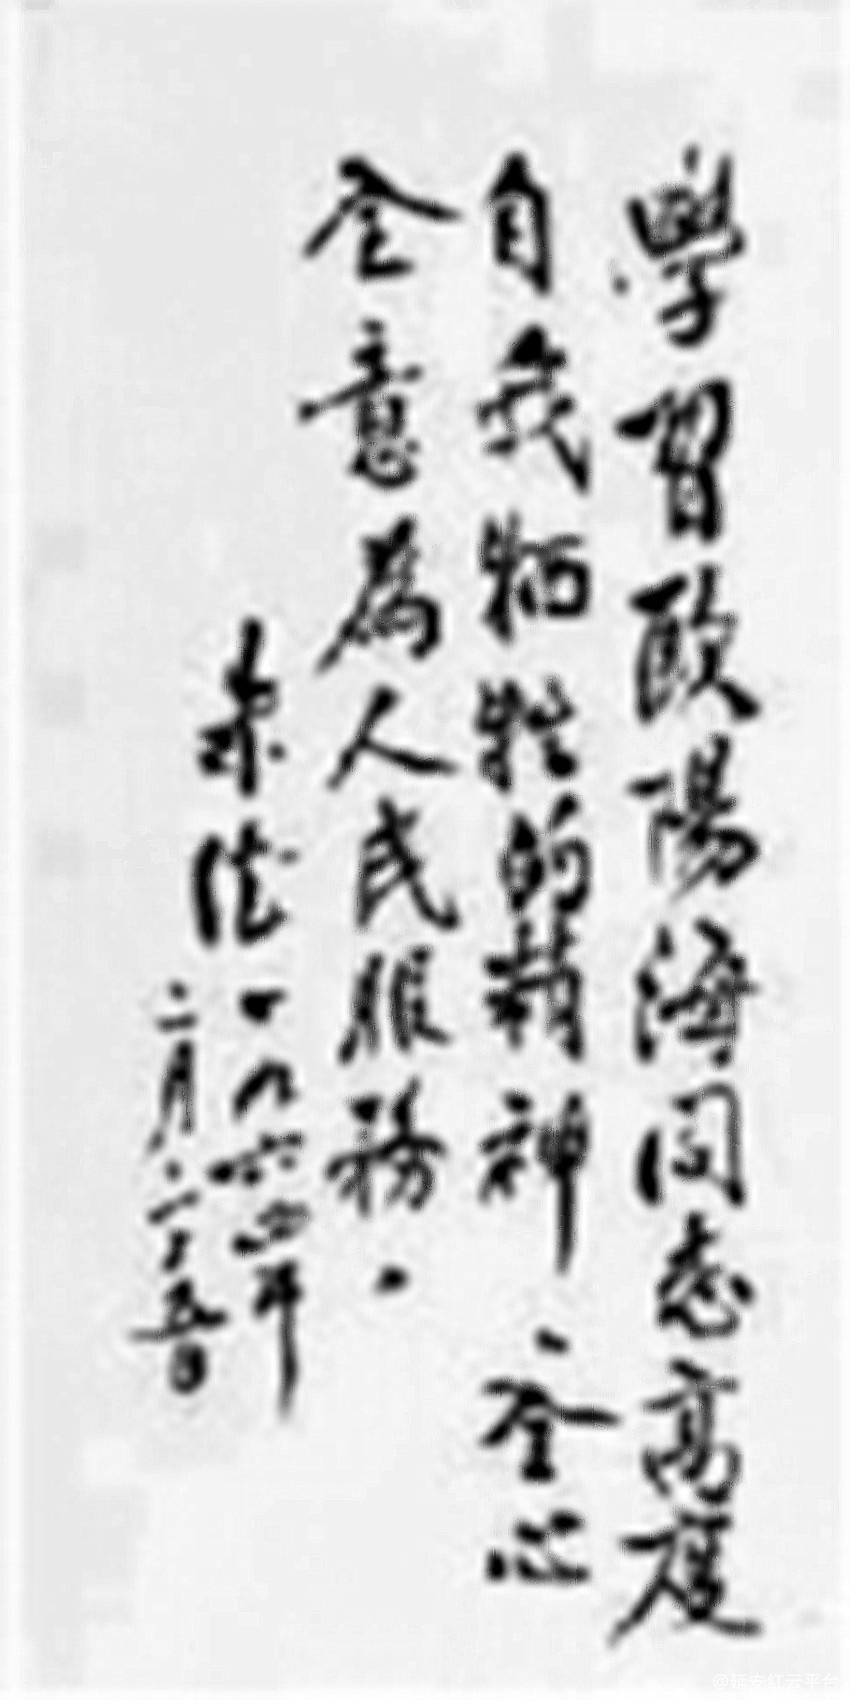 學習歐陽海同志高度
自我牺牲的精神、全心
全意為人民服務．
朱德一九六四年
二月二十五日
@延安红云平台